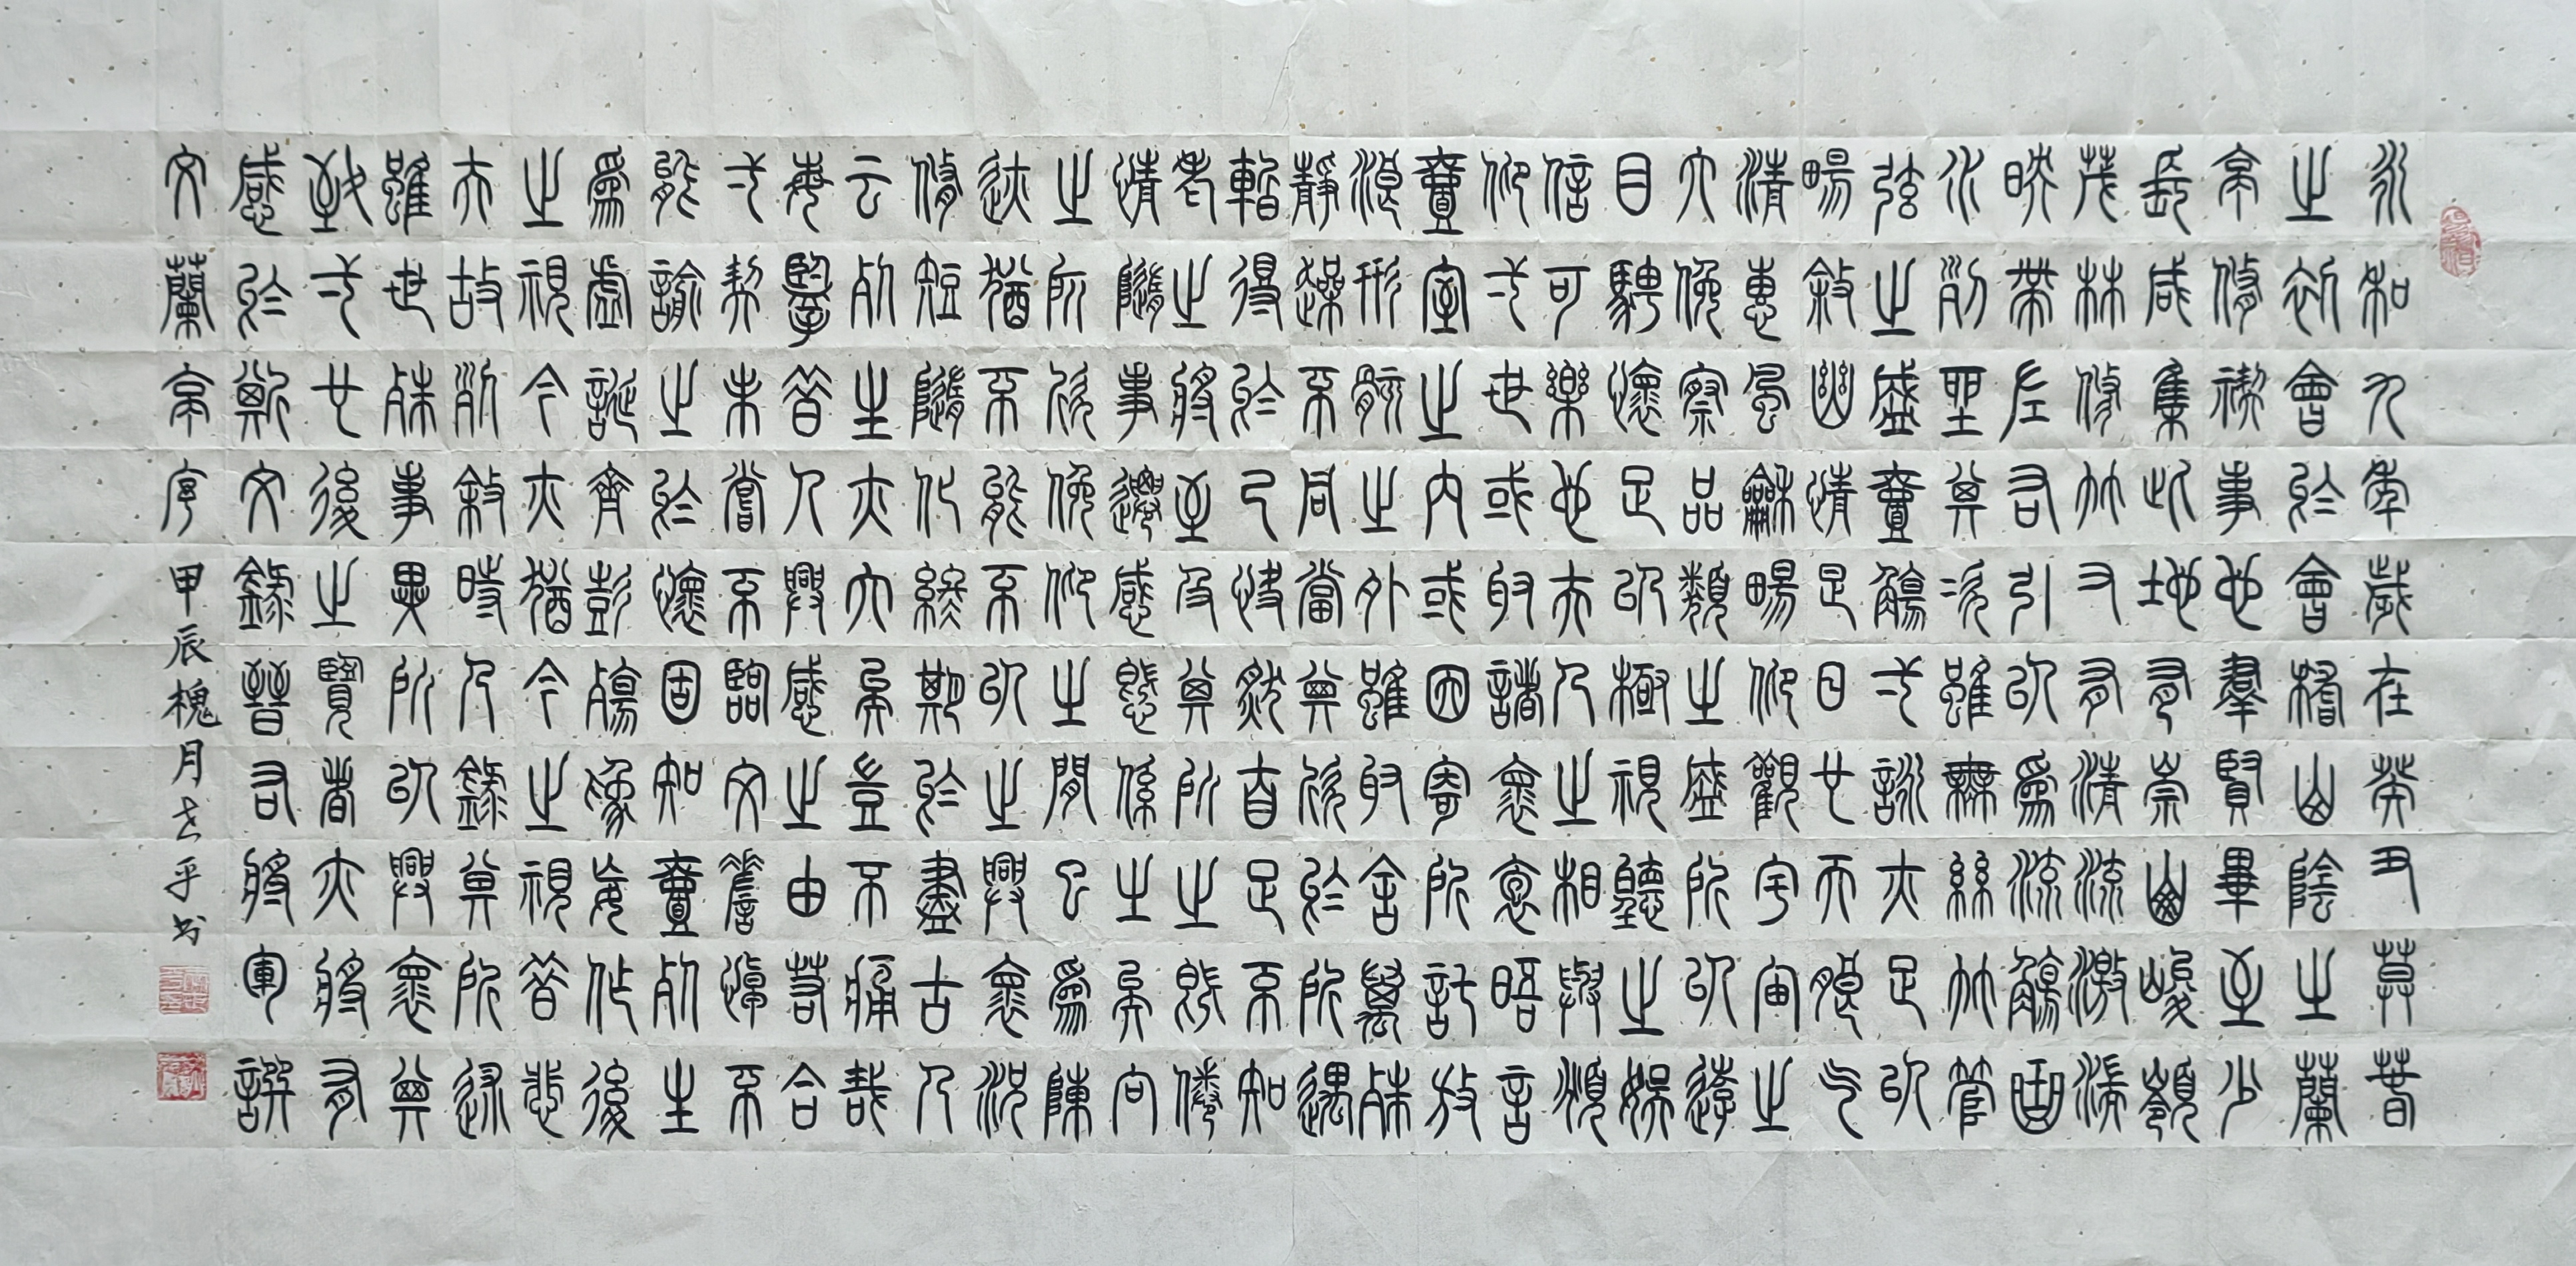 永和九年歲在癸丑暮春
之初會於會稽山陰之蘭
亭修禊事也羣賢畢至少
長咸集此地有崇山峻嶺
茂林修竹又有清流激湍
映帶左右引以爲流觴曲
水列坐其次雖無絲竹管
弦之盛壹觴一詠亦足以
暢敘幽情是日也天朗气
清惠風龢暢仰觀宇宙之
大俛察品類之盛所以遊
目騁懷足以極視聽之娛
信可樂也夫人之相與頫
仰一世或取諸懷抱晤言
壹室之內或因寄所託放
浪形骸之外雖取舍萬殊
靜躁不同當其欣於所遇
暫得於己快然自足不知
老之將至及其所之既倦
情隨事遷感慨係之矣向
之所欣俛仰之間已爲陳
迹猶不能不以之興懷況
修短隨化終期於盡古人
云死生亦大矣豈不痛哉
每擥昔人興感之由若合
一契未嘗不臨文嗟悼不
能諭之於懷固知壹死生
爲虛誕齊彭殤爲妄作後
之視今亦猶今之視昔悲
夫故列敘時人錄其所述
雖世殊事異所以興懷其
致一也後之覽者亦將有
感於斯文錄晉右將軍譔
文蘭亭序 甲辰槐月 书